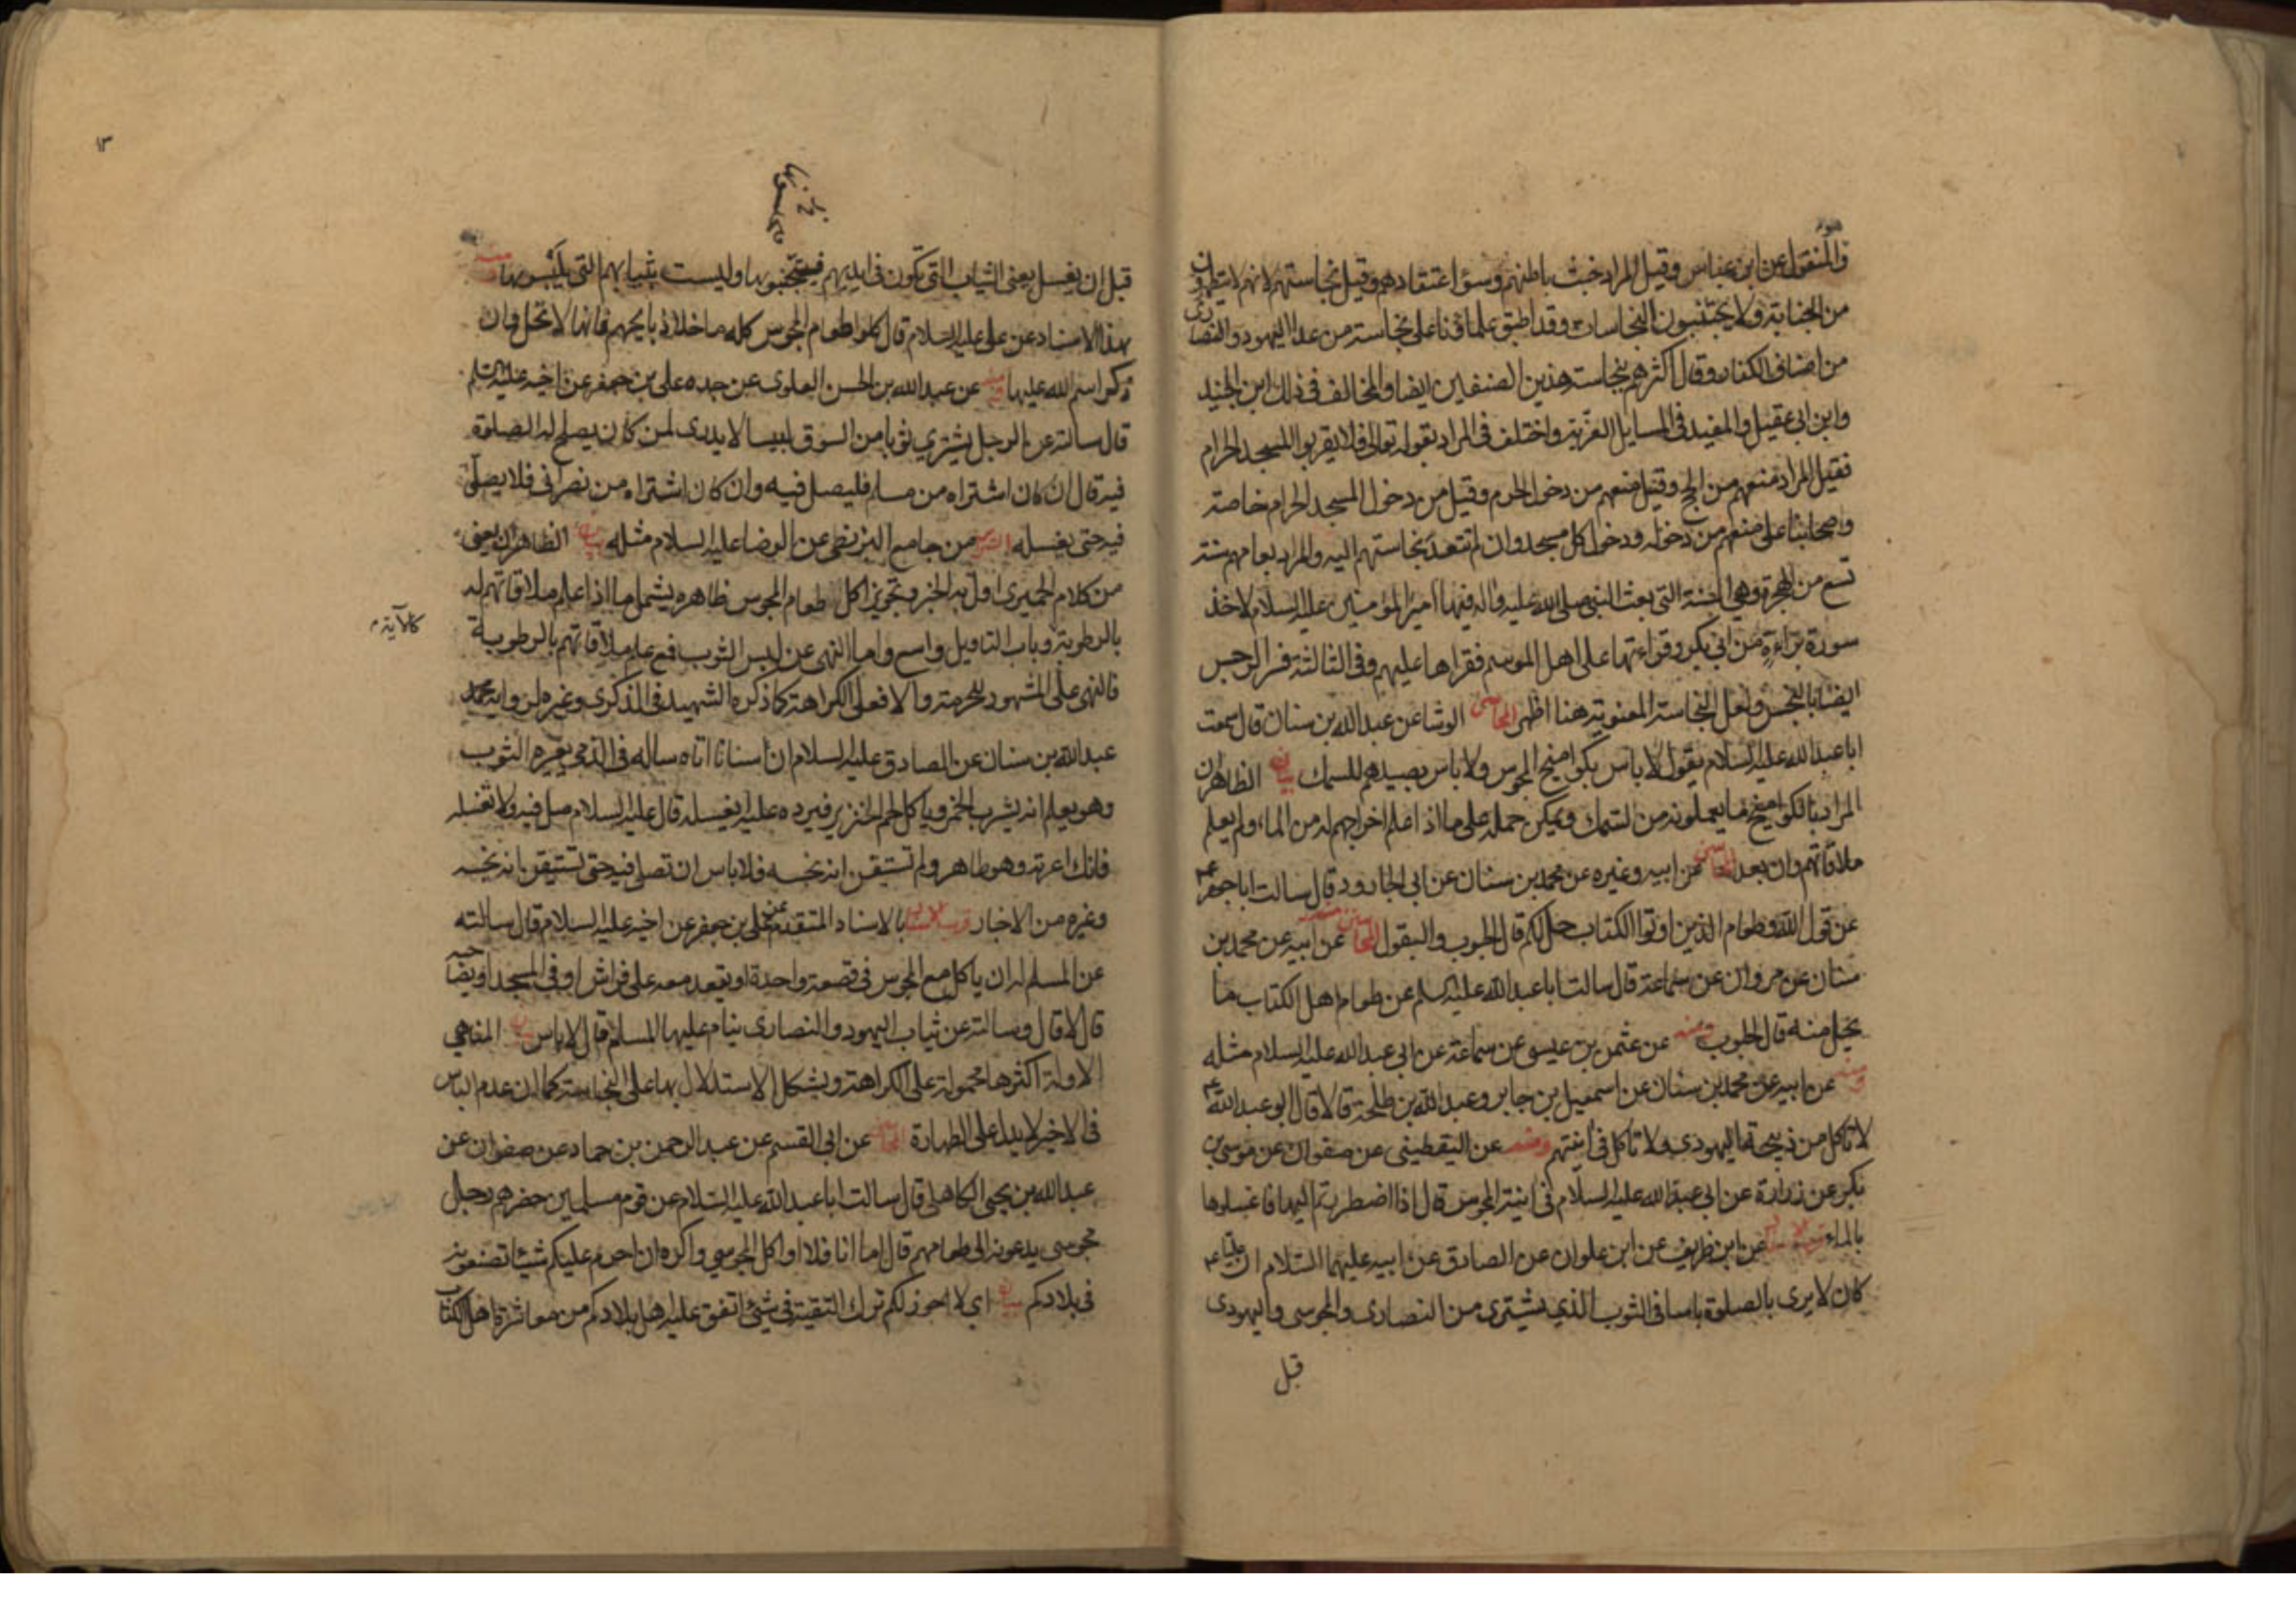 والمنقول عن ابن عباس وقيل المراد خبث باطنهم وسوء اعتقادهم وقيل نجاستهم لانهم لا يتطهرون
من الجنابة ولا يجتنبون النجاسات وقد اطبق علماؤنا على نجاسة من عدا اليهود والنصارى
من اصناف الكفار وقال اكثرهم بنجاسة هذين الصنفين ايضا والمخالف في ذلك ابن الجنيد
وابن ابي عقيل والمفيد في المسايل الغرية واختلف في المراد بقوله تعالى فلا يقربوا المسجد الحرام
فقيل المراد منعهم من الحج وقيل منعهم من دخول الحرم وقيل من دخول المسجد الحرام خاصة
واصحابنا على منعهم من دخوله ودخول كل مسجد وان لم تتعد نجاستهم اليه والمراد بعامهم سنة
تسع من الهجرة وهي السنة التي بعث النبي صلى الله عليه واله فيها امير المؤمنين عليه السلام لاخذ
سورة براءة من ابي بكر وقراءتها على اهل الموسم فقراها عليهم وفي الثالثة فسر الرجس
ايضا بالنجس ولعل النجاسة المعنوية هنا اظهر المحاسن الوشا عن عبد الله بن سنان قال سمعت
ابا عبد الله عليه السلام يقول لا باس بكواميخ المجوس ولا باس بصيدهم للسمك بيان الظاهر ان
المراد بالكواميخ ما يعملونه من السمك ويمكن حمله على ما اذا علم اخراجهم له من الماء ولم يعلم
ملاقاتهم وان بعد المحاسن عن ابيه وغيره عن محمد بن سنان عن ابي الجارود قال سالت ابا جعفر ع
عن قول الله وطعام الذين اوتوا الكتاب حل لكم قال الحبوب والبقول المحاسن عن ابيه عن محمد بن
سنان عن مروان عن سماعة قال سالت ابا عبد الله عليه السلم عن طعام اهل الكتاب ما
يحل منه قال الحبوب ومنه عن عثمن بن عيسى عن سماعة عن ابي عبد الله عليه السلام مثله
ومنه عن ابيه عن محمد بن سنان عن اسمعيل بن جابر وعبد الله بن طلحة قالا قال ابو عبد الله ع
لا تاكل من ذبيحة اليهودي ولا تاكل في انيتهم ومنه عن اليقطيني عن صفوان عن موسى بن
بكر عن زرارة عن ابي عبد الله عليه السلام في انية المجوس قال اذا اضطررتم اليها فاغسلوها
بالماء قرب الاسناد عن ابن ظريف عن ابن علوان عن الصادق عن ابيه عليهما السلام ان عليا ع
كان لا يرى بالصلوة باسا في الثوب الذي يشترى من النصارى والمجوسى واليهودى
قبل
١٣
قبل ان يغسل يعنى الثياب التي تكون في ايديهم فيتجنبونها وليست بثيابهم التي يلبسونها ومنه
بهذا الاسناد عن علي عليه السلام قال كلوا طعام المجوس كله ما خلا ذبايحهم فانها لا تحل وان
ذكر اسم الله عليها ومنه عن عبد الله بن الحسن العلوى عن جده علي بن جعفر عن اخيه عليه السلم
قال سالته عن الرجل يشتري ثوبا من السوق لبيسا لا يدرى لمن كان يصلح له الصلوة
فيه قال ان كان اشتراه من مسلم فليصل فيه وان كان اشتراه من نصراني فلا يصلي
فيه حتى يغسله السرائر من جامع البزنطي عن الرضا عليه السلام مثله بيان الظاهر ان يعنى
من كلام الحميرى اول به الخبر وتجويز اكل طعام المجوس ظاهره يشمل ما اذا علم ملاقاتهم له
كالآية
بالرطوبة وباب التاويل واسع واما النهي عن لبس الثوب فمع علم ملاقاتهم بالرطوبة
فالنهى على المشهور للحرمة والا فعلى الكراهة كما ذكره الشهيد في الذكرى وغيره لرواية محمد
عبد الله بن سنان عن الصادق عليه السلام ان انسانا اتاه ساله في الذمي يعيره الثوب
وهو يعلم انه يشرب الخمر وياكل لحم الخنزير فيرده عليه ايغسله قال عليه السلام صل فيه ولا تغسله
فانك اعرته وهو طاهر ولم تستيقن انه نجسه فلا باس ان تصلي فيه حتى تستيقن انه نجسه
وغيره من الاخبار قرب الاسناد بالاسناد المتقدم عن علي بن جعفر عن اخيه عليه السلام قال سالته
عن المسلم له ان ياكل مع المجوس في قصعة واحدة او يقعد معه على فراش او في المسجد او يصاحبه
قال لا قال وسالته عن ثياب اليهود والنصارى ينام عليها المسلم قال لا باس بيان المناهي
الاولة اكثرها محمولة على الكراهة ويشكل الاستدلال بها على النجاسة كما ان عدم الباس
في الاخير لا يدل على الطهارة المحاسن عن ابي القسم عن عبد الرحمن بن حماد عن صفوان عن
عبد الله بن يحيى الكاهلى قال سالت ابا عبد الله عليه السلام عن قوم مسلمين حضرهم رجل
مجوسى يدعونه الى طعامهم قال اما انا فلا اواكل المجوسي واكره ان احرم عليكم شيئا تصنعونه
في بلادكم بيان اي لا اجوز لكم ترك التقية في شيئ اتفق عليه اهل بلادكم من معاشرة اهل الكتاب